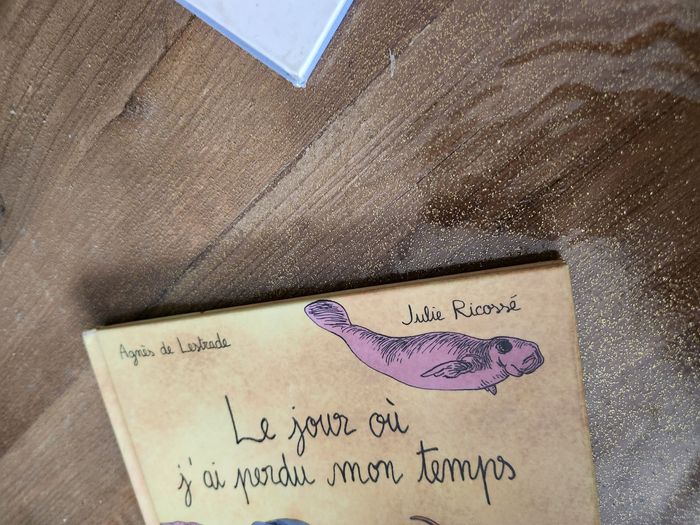 Agnès de Lestrade
Julie Ricossé
Le jour où
j'ai perdu mon temps